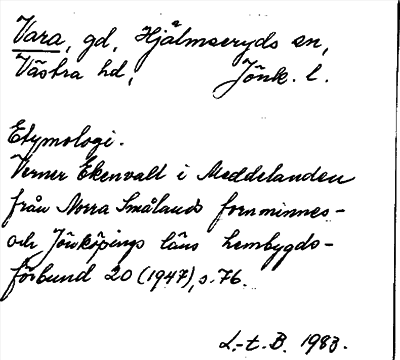 Vara, gd, Hjälmseryds sn,
Västra hd, Jönk. l.
Etymologi.
Verner Ekenvall i Meddelanden
från Norra Smålands fornminnes-
och Jönköpings läns hembygds-
förbund 20 (1947), s. 76.
L.-t. B. 1983.